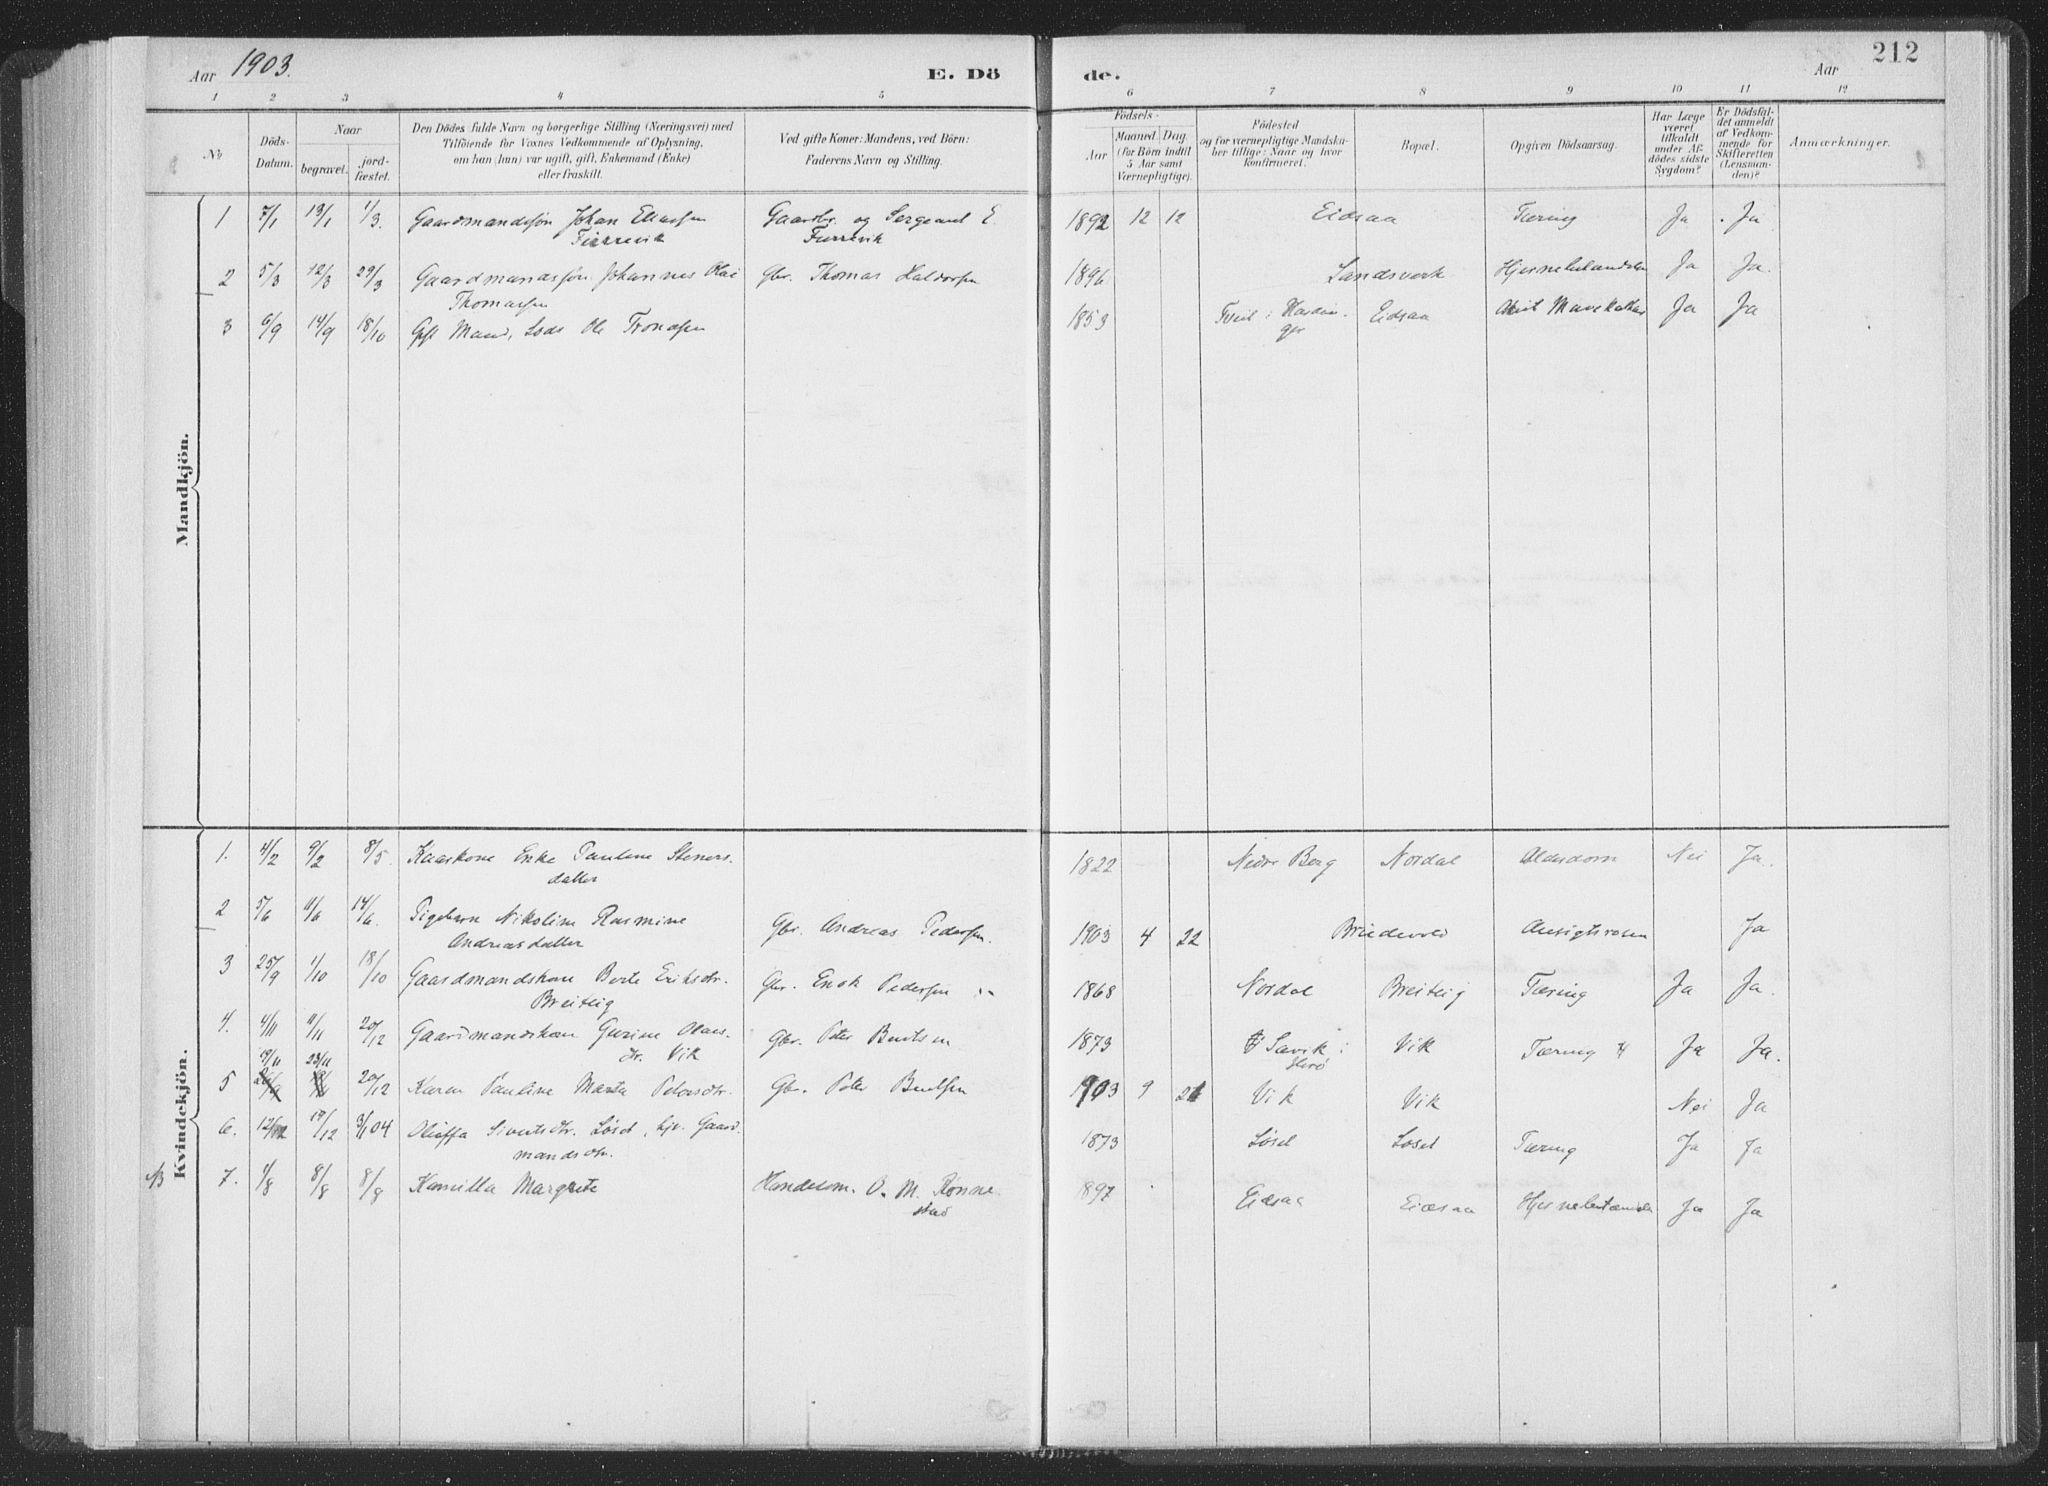 Aar 1903.
E. Dö
de.
Aar
212
1 2 3 4 5 6 7 8 9 10 11 12
No
Döds-
Datum.
Naar
begravet.
jord-
fæstet.
Den Dödes fulde Navn og borgerlige Stilling (Næringsvei) med
Tilföiende for Voxnes Vedkommende af Oplysning,
om han (hun) var ugift, gift, Enkemand (Enke)
eller fraskilt.
Ved gifte Koner: Mandens, ved Börn:
Faderens Navn og Stilling.
Födsels-
Aar
Maaned. Dag.
(for Börn indtil
5 Aar samt
Værnepligtige).
Födested
og for værnepligtige Mandska-
ber tillige: Naar og hvor
konfirmeret.
Bopæl.
Opgiven Dödsaarsag.
Har Læge
været
tilkaldt
under Af-
dödes sidste
Sygdom?
Er Dödsfal-
det anmeldt
af Vedkom-
mende for
Skifteretten
(Lensman-
den)?
Anmærkninger.
Mandkjön.
1 7/1 13/1 1/3. Gaardmandssøn Johan Eliassen Gaardbr. og Sergeant E. 1892 12 12 Eidsaa Tæring Ja Ja
Furrevik Furrevik
2 5/3 12/3 29/3 Gaardmandssøn Johannes Olai Gbr. Thomas Haldorsen 1896 Landsverk Ja Ja.
Thomassen
3 6/9 14/9 18/10 Gift Mand, Lods Ole Trondsen 1853 Tveit i Hardan- Eidsaa Ja Ja
ger
Kvindekjön.
1. 4/2 9/2 8/5. Kaarkone Enke Pauline Steners- 1822 Nedre Berg Nordal Aldersdom Nei Ja.
datter
2 5/6 11/6 14/6. Pigebarn Nikoline Rasmine Gbr. Andreas Pedersen. 1903 4 22 Ansigtsrosen Ja
Andreasdatter
3 25/9 1/10 18/10 Gaardmandskone Berte Eriksdtr. Gbr. Enok Pedersen 1868 Nordal Breiteig Tæring Ja Ja.
Breiteig
4. 4/11 11/11 20/12 Gaardmandskone Gurine Olaus- Gbr. Peter 1873 Sævik i Vik Tæring Ja Ja.
dr. Vik Herø
19/11 23/11
5 20/12 Karen Pauline Marta Petersdtr. Gbr. Peter 1903 9 21 Vik Vik Nei Ja
6. 12/12 19/12 3/1 04 Oluffa Sivertsdtr. Løset, Gaard- 1873 Løset Løset Tæring Ja Ja
mandsdtr.
NB 7. 1/8 8/8 8/8 Kamilla Margrete Handelsm. O. M. Rønne- 1897 Eidsaa Eidsaa Ja Ja
stad